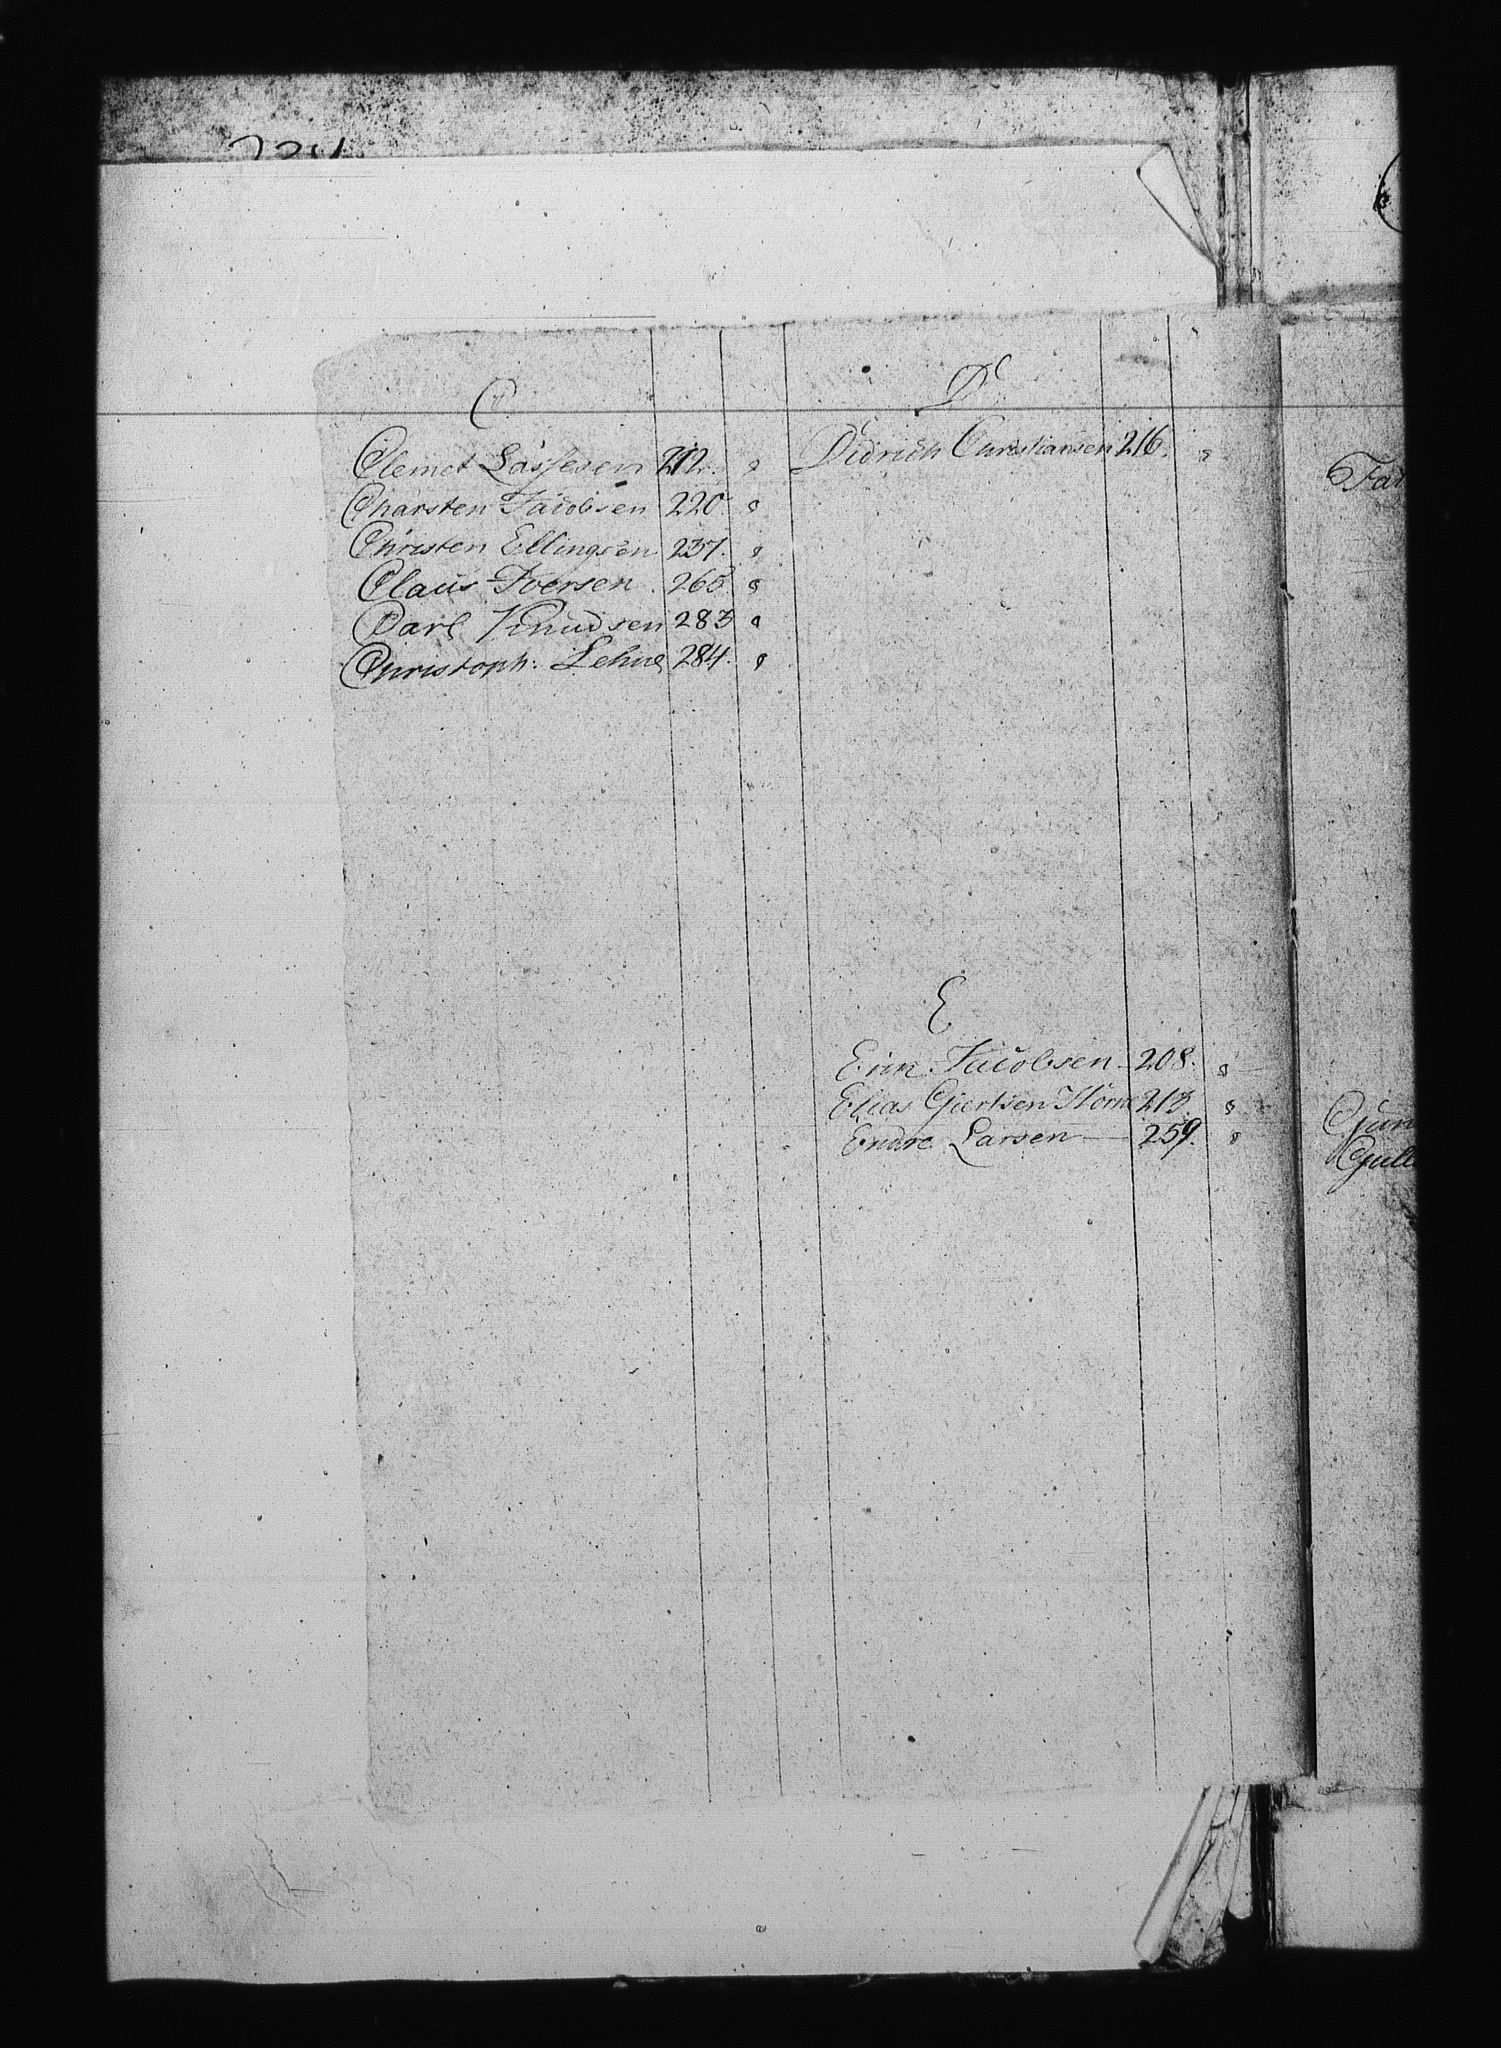 C.
Clemet Lassesen 212.
Charsten Jacobsen 220
Christen Ellingsen 237.
Claus Iversen. 265
Carl Knudsen 283
Christoph: Lehne 284.
D
Didrich Christiansen 216.
E
Erin Jacobsen 208.
Elias Giertsen 213.
Endre Larsen 259.